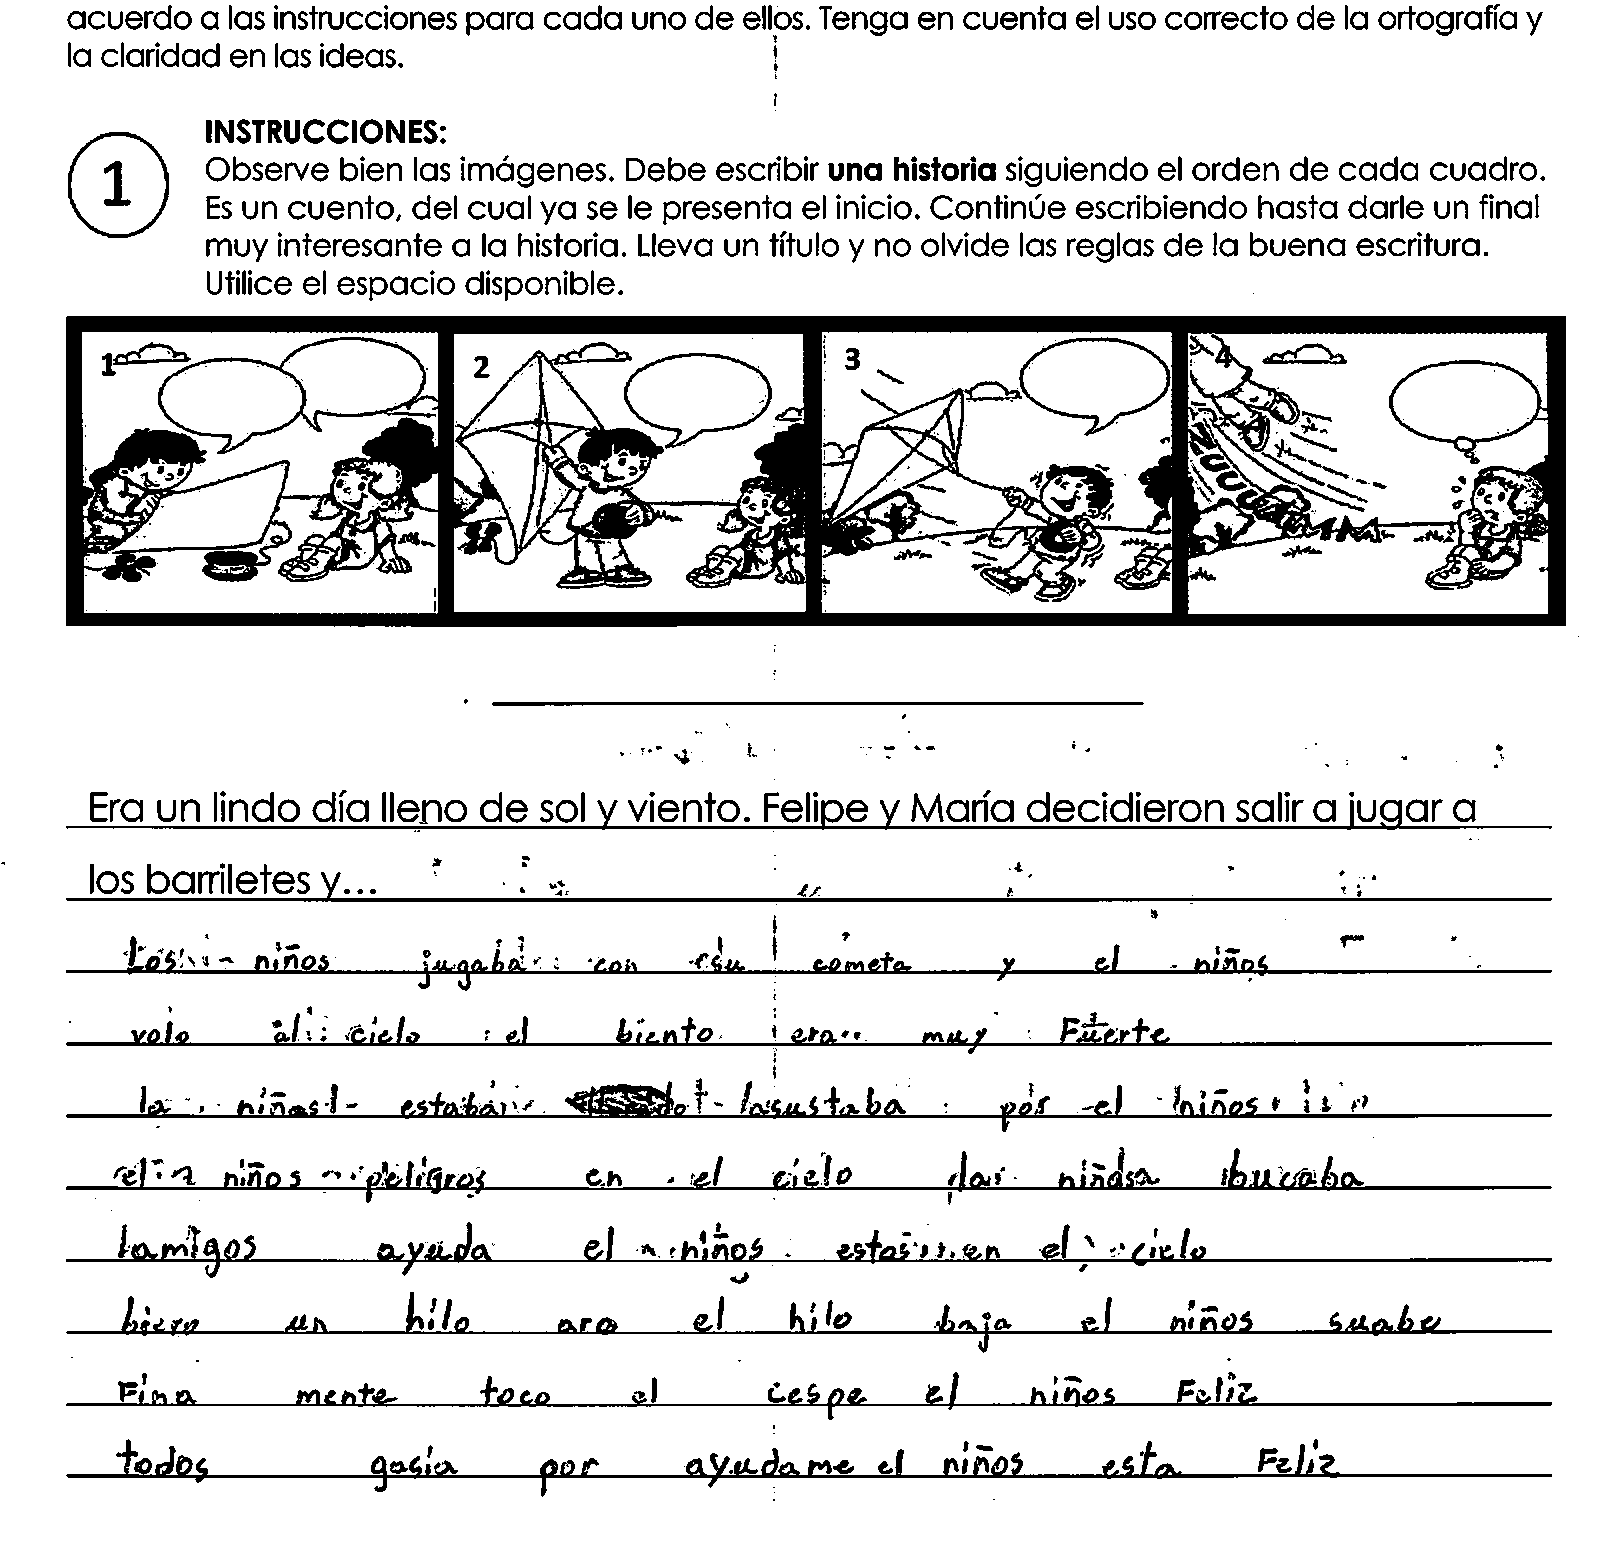 acuerdo a las instrucciones para cada uno de ellos. Tenga en cuenta el uso correcto de la ortografía y
la claridad en las ideas.
1
INSTRUCCIONES:
Observe bien las imágenes. Debe escribir una historia siguiendo el orden de cada cuadro.
Es un cuento, del cual ya se le presenta el inicio. Continúe escribiendo hasta darle un final
muy interesante a la historia. Lleva un título y no olvide las reglas de la buena escritura.
Utilice el espacio disponible.
1 2 3 4
ZUUUUMMM
Era un lindo día lleno de sol y viento. Felipe y María decidieron salir a jugar a
los barriletes y...
Los niños jugaba con su cometa y el niños
volo al cielo el biento era muy Fuerte
la niñas estaba asustaba por el niños
el niños peligros en el cielo niñasa bucaba
amigos ayuda el niños estas en el cielo
un hilo el hilo baja el niños suabe
Fina mente toco el cespe el niños Feliz
todos gasia por ayudame el niños esta Feliz